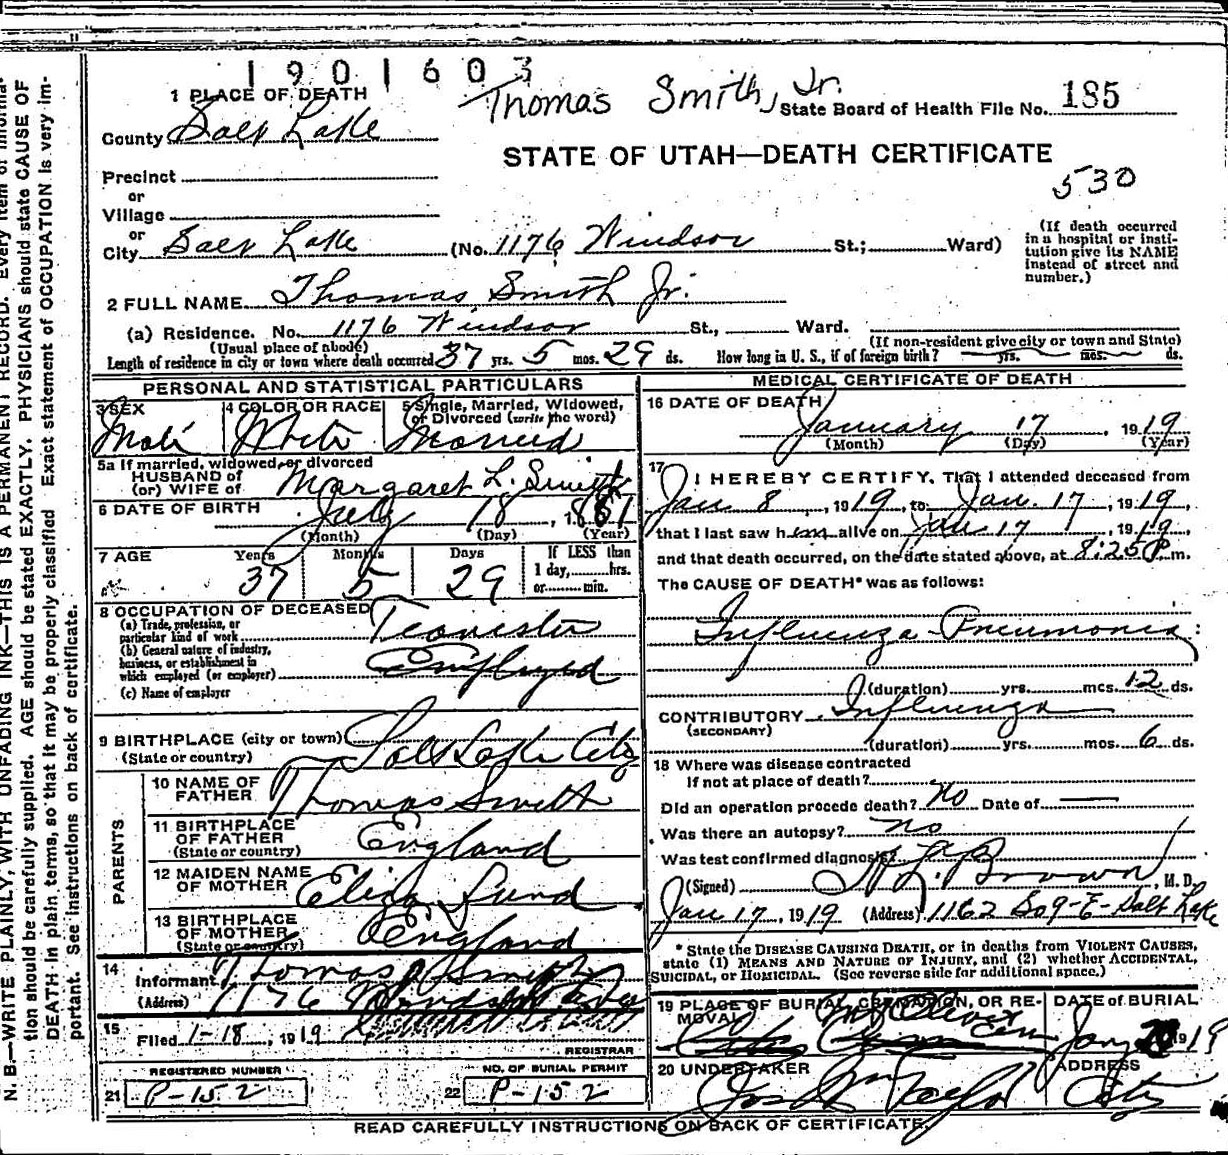 1901603
Thomas Smith, Jr.
1 PLACE OF DEATH
State Board of Health File No. 185
County Salt Lake
STATE OF UTAH—DEATH CERTIFICATE
530
Precinct
or
Village
or
City Salt Lake (No. 1176 Windsor St.; Ward)
(If death occurred in a hospital or insti-
tution give its NAME
instead of street and
number.)
2 FULL NAME Thomas Smith Jr.
(a) Residence. No. 1176 Windsor St., Ward.
(Usual place of abode) (If non-resident give city or town and State)
Length of residence in city or town where death occurred 37 yrs. 5 mos. 29 ds. How long in U. S., if of foreign birth? yrs. mos. ds.
PERSONAL AND STATISTICAL PARTICULARS
3 SEX
Male
4 COLOR OR RACE
White
5 Single, Married, Widowed,
or Divorced (write the word)
Married
5a If married, widowed, or divorced
HUSBAND of
(or) WIFE of Margaret L. Smith
6 DATE OF BIRTH
July 18, 1881
(Month) (Day) (Year)
7 AGE Years Months Days If LESS than
1 day, hrs.
or min.
37 5 29
8 OCCUPATION OF DECEASED
(a) Trade, profession, or
particular kind of work Teamster
(b) General nature of industry,
business, or establishment in
which employed (or employer) Employed
(c) Name of employer
9 BIRTHPLACE (city or town) Salt Lake City
(State or country)
PARENTS
10 NAME OF
FATHER Thomas Smith
11 BIRTHPLACE
OF FATHER England
(State or country)
12 MAIDEN NAME
OF MOTHER Eliza Lund
13 BIRTHPLACE
OF MOTHER England
(State or country)
14
Informant Thomas Smith
(Address) 1176 Windsor
15
Filed 1-18, 1919
REGISTRAR
REGISTERED NUMBER
21 P-152
NO. OF BURIAL PERMIT
22 P-152
MEDICAL CERTIFICATE OF DEATH
16 DATE OF DEATH
January 17, 1919
(Month) (Day) (Year)
17
I HEREBY CERTIFY, That I attended deceased from
Jan 8, 1919, to Jan. 17, 1919,
that I last saw him alive on Jan 17, 1919
and that death occurred, on the date stated above, at 8:25 P.m.
The CAUSE OF DEATH* was as follows:
Influenza-Pneumonia
(duration) yrs. mos. 12 ds.
CONTRIBUTORY Influenza
(SECONDARY)
(duration) yrs. mos. 6 ds.
18 Where was disease contracted
If not at place of death?
Did an operation precede death? No Date of
Was there an autopsy? no
Was test confirmed diagnosis?
(Signed) L. Brown, M. D.
Jan 17, 1919 (Address) 1162 So 9-E-Salt Lake
* State the DISEASE CAUSING DEATH, or in deaths from VIOLENT CAUSES,
state (1) MEANS AND NATURE OF INJURY, and (2) whether ACCIDENTAL,
SUICIDAL, OR HOMICIDAL. (See reverse side for additional space.)
19 PLACE OF BURIAL, CREMATION, OR RE-
MOVAL Mt Olivet Cem
DATE of BURIAL
Jan 1919
20 UNDERTAKER
Jos Wm Taylor
ADDRESS
City
READ CAREFULLY INSTRUCTIONS ON BACK OF CERTIFICATE.
N. B.—WRITE PLAINLY, WITH UNFADING INK—THIS IS A PERMANENT RECORD. Every item of informa-
tion should be carefully supplied. AGE should be stated EXACTLY. PHYSICIANS should state CAUSE OF
DEATH in plain terms, so that it may be properly classified. Exact statement of OCCUPATION is very im-
portant. See instructions on back of certificate.